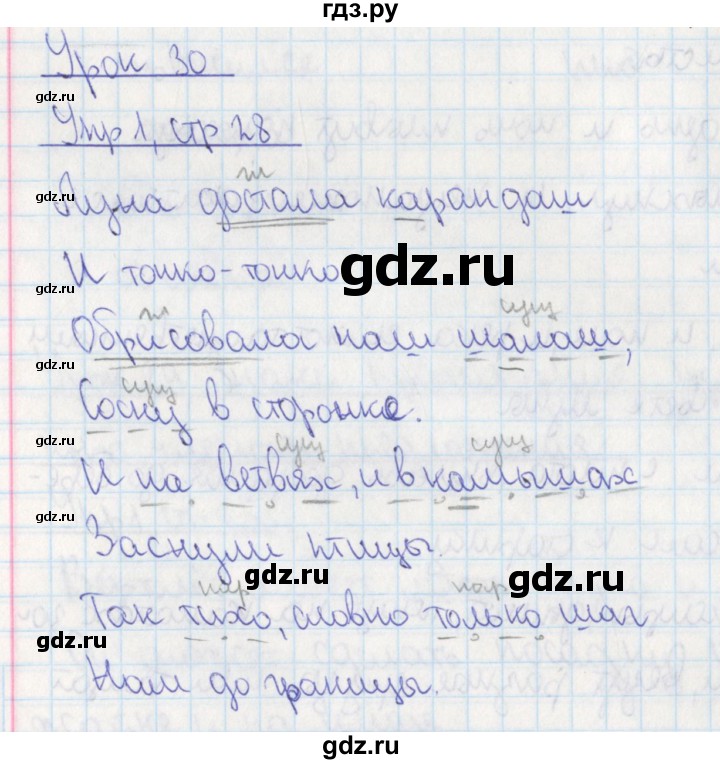 гдз.ру
Урок 30
gdz.ru
Упр 1, стр 28
гл
gdz.ru
Луна достала карандаш
gdz.ru
И тонко-тонко
gdz.ru
гл сущ
Обрисовала наш шалаш,
gdz.ru
сущ
Сосну в сторонке.
сущ сущ
gdz.ru
И на ветвях, и в камышах
gdz.ru
Заснули птицы.
gdz.ru gdz.ru
нар нар
Так тихо, словно только шаг
gdz.ru
Нам до границы.
gdz.ru